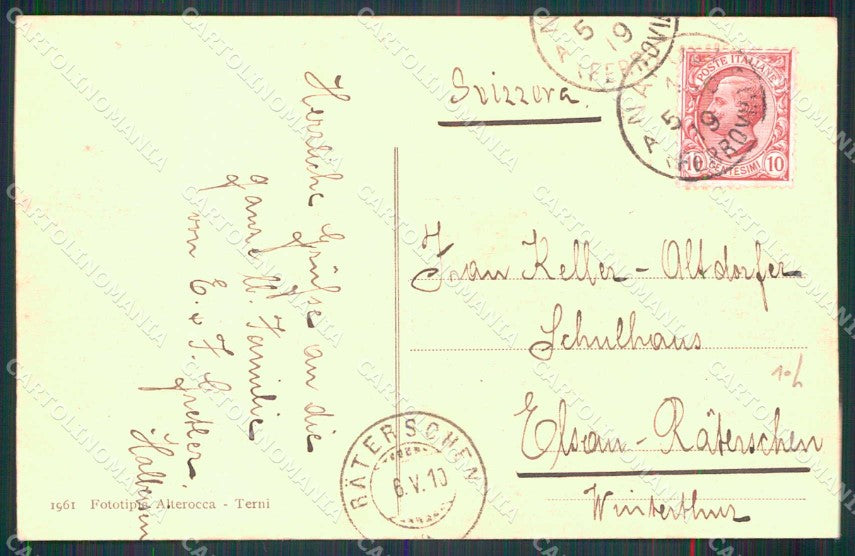 Svizzera.
POSTE ITALIANE
10 CENTESIMI 10
Herzliche Grüße an die
ganze W. Familie
von E. & F. Gretler
Frau Keller-Altdorfer
Schulhaus
Elsau-Räterschen
Winterthur
RÄTERSCHEN
6.V.10
1961 Fototipia Alterocca - Terni
CARTOLINOMANIA